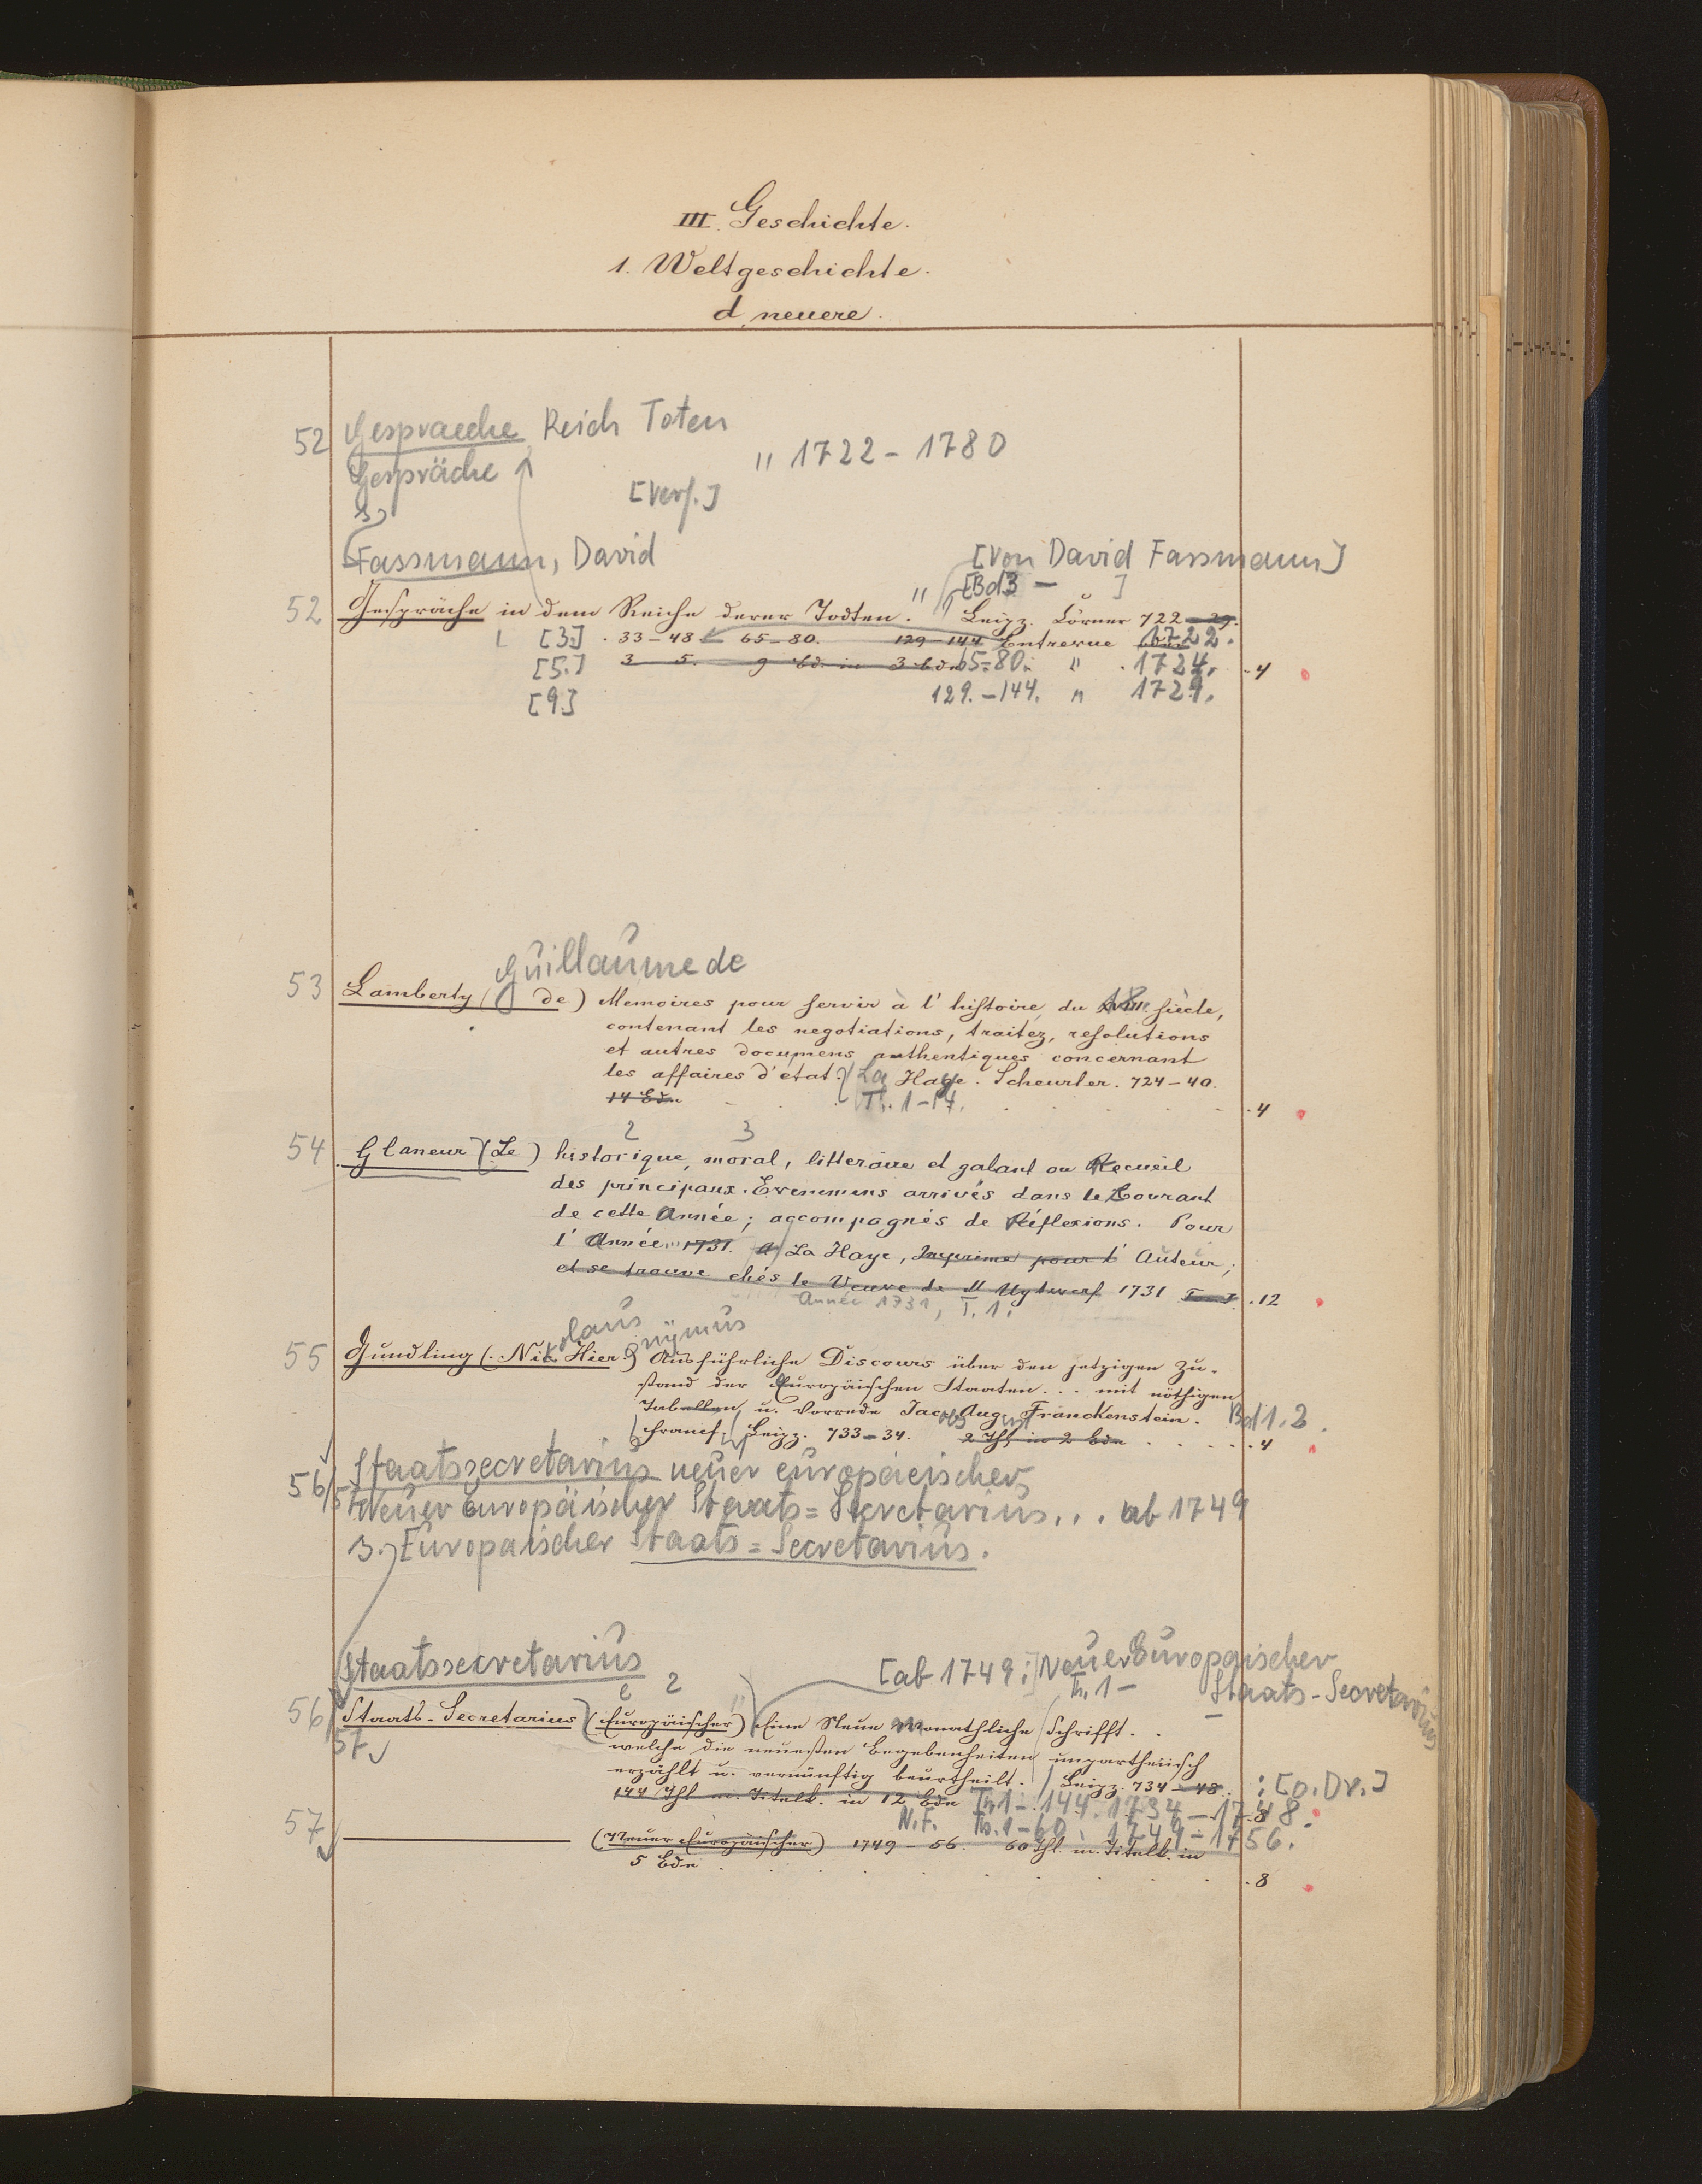 III. Geschichte.
1. Weltgeschichte.
d, neuere.
52 Gespraeche Reich Toten
Gespräche " 1722 - 1780
s. [Verf.]
Fassmann, David [Von David Fassmann]
" [Bd3 - ]
52 Gespräche in dem Reiche derer Todten. Leipz. Cörner 722-29.
[3.] 33-48 65-80. 129-144 Entrevue 1722.
[5.] 3 5. 9 Bd. in 3 Bdn 65-80. " 1724. 4
[9.] 129.-144. " 1729.
Guillaume de
53 Lamberty ( de) Memoires pour servir à l'histoire du 18. siècle,
contenant les negotiations, traitez, resolutions
et autres documens authentiques concernant
les affaires d'état. La Haye. Scheurler. 724-40.
14 Bdn Th. 1-14. 4
2 3
54 Glaneur (Le) historique, moral, litteraire et galant ou Recueil
des principaux Evenemens arrivés dans le Courant
de cette Année; accompagnés de Réflexions. Pour
l'Année 1731. a La Haye, Imprime pour l'Auteur;
et se trouve chés le Veuve de M Uytwerf 1731 Tom I. 12
Année 1731, T. 1.
olaus nymus
55 Gundling (Nik Hier.) Ausführliche Discours über den jetzigen Zu-
stand der Europäischen Staaten... mit nöthigen
Tabellen u. Vorrede Jac. Aug. Franckenstein. Bd 1.2.
Francf. Leipz. 733-34. 2 Thl in 2 Bdn 4
56/57 Staatssecretarius neuer europaeischer
Neuer Europäischer Staats=Secretarius... ab 1749
s. Europäischer Staats=Secretarius.
Staatssecretarius [ab 1749:] Neuer Europäischer
2 Th. 1- Staats-Secretarius
56/57 Staats-Secretarius (Europäischer) Eine Neue Monathliche Schrifft..
welche die neuesten Begebenheiten unpartheiisch
erzählt u. vernünftig beurtheilt. Leipz. 734-48. : [o. Dr.]
144 Thl m. Titelk. in 12 Bdn Th 1-144. 1734-1748. 8
N.F. Th. 1-60. 1749-1756.
57 (Neuer Europäischer) 1749-56. 60 Thl. m. Titelk. in
5 Bdn 8